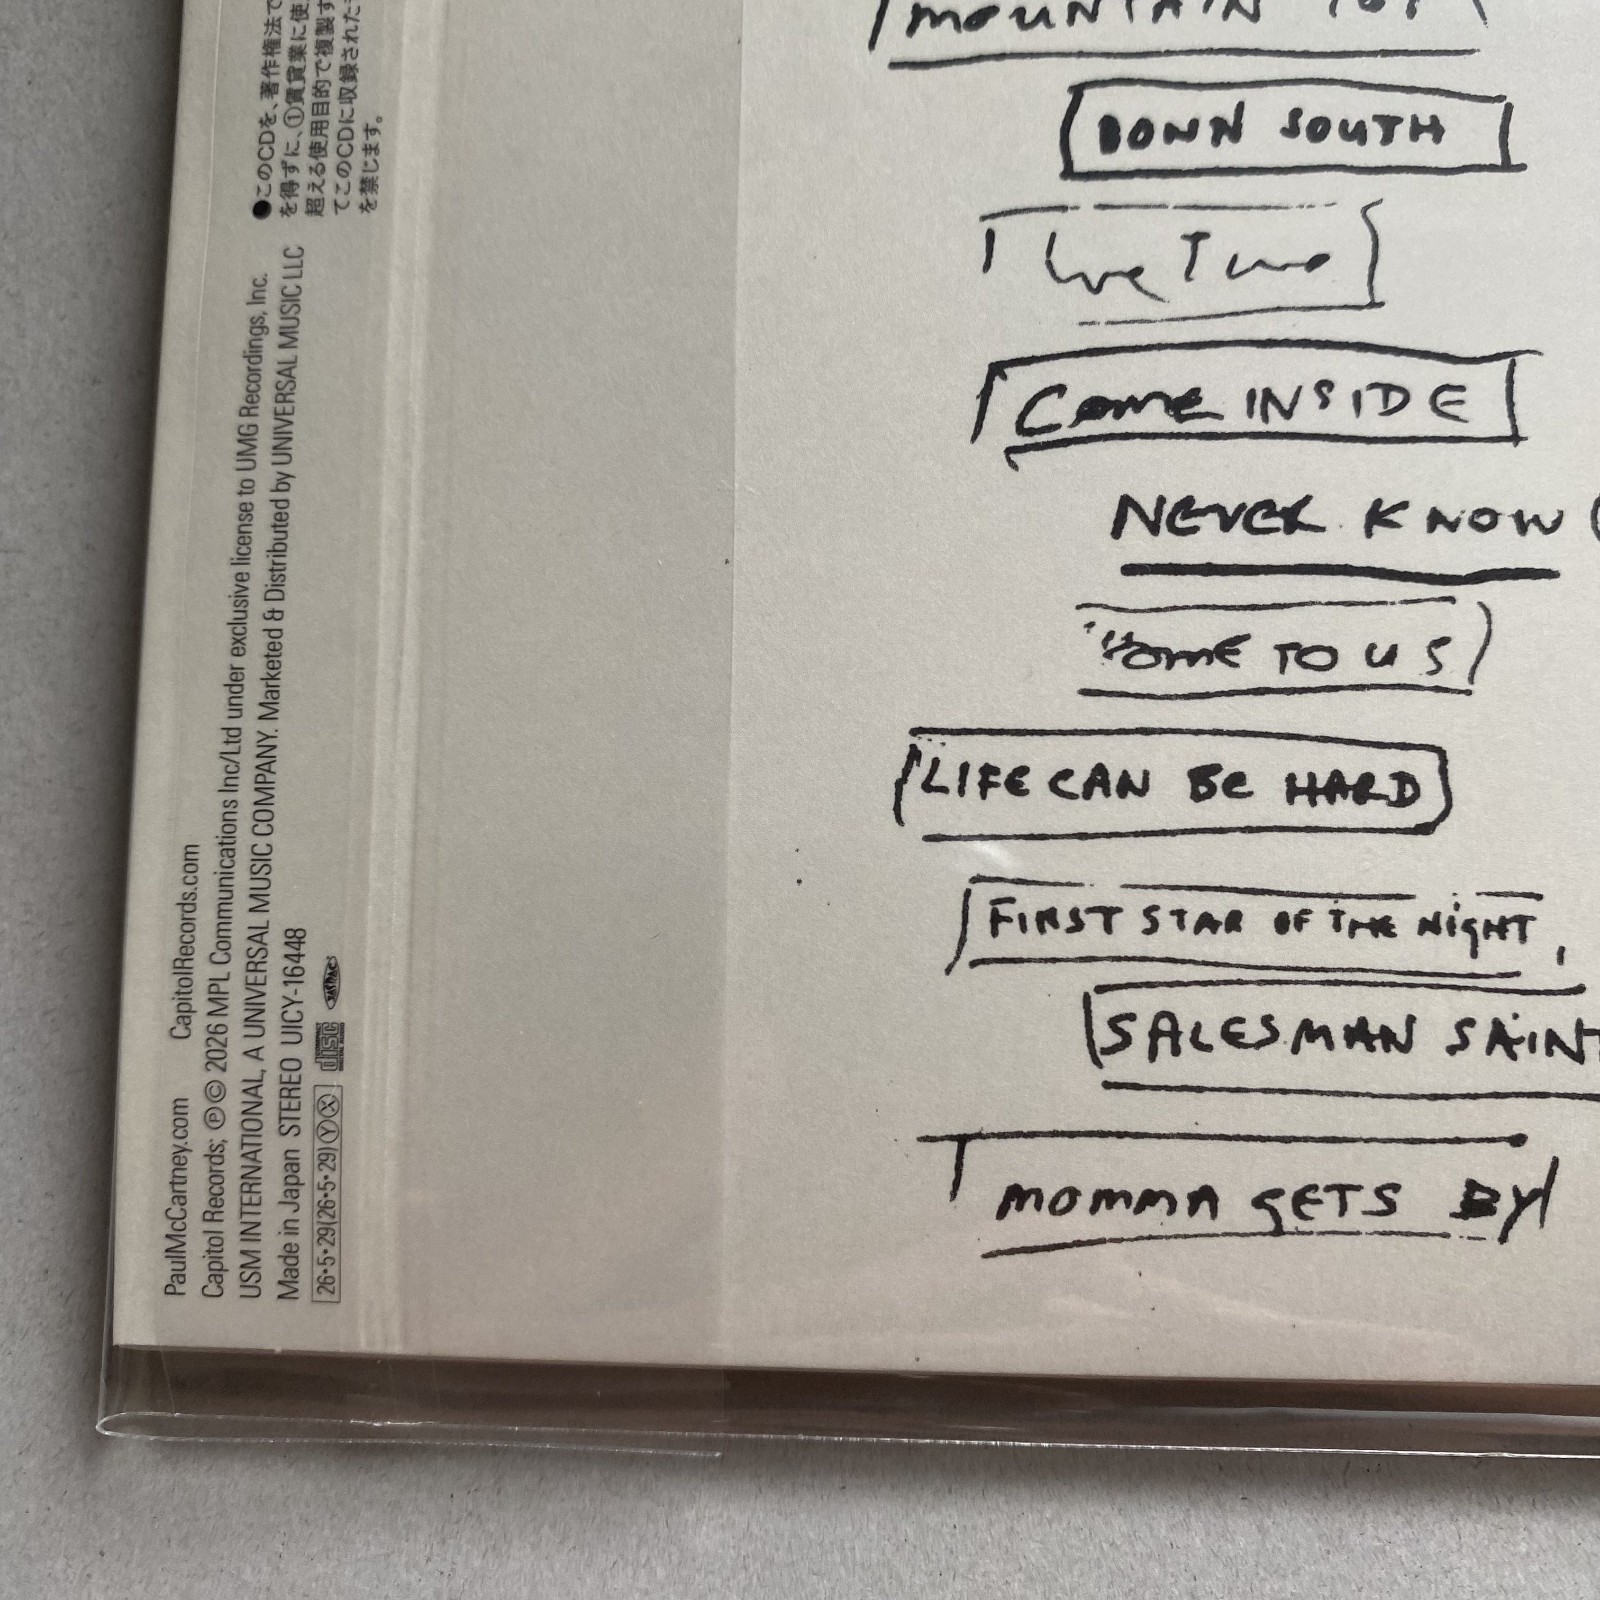 MOUNTAIN TOP
DOWN SOUTH
COME INSIDE
NEVER KNOW
HOME TO US
LIFE CAN BE HARD
FIRST STAR OF THE NIGHT
SALESMAN SAINT
MOMMA GETS BY
PaulMcCartney.com CapitolRecords.com
Capitol Records; ℗©2026 MPL Communications Inc/Ltd under exclusive license to UMG Recordings, Inc.
USM INTERNATIONAL, A UNIVERSAL MUSIC COMPANY. Marketed & Distributed by UNIVERSAL MUSIC LLC
Made in Japan STEREO UICY-16448
26•5•29(26•5•29)ⓎⓍ COMPACT disc DIGITAL AUDIO
●このCDを、著作権法で
を得ずに、①賃貸業に使
超える使用目的で複製す
てこのCDに収録された
を禁じます。